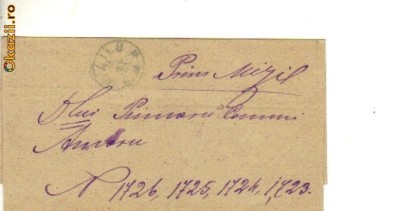 Okazii.ro
Prin Mizil
Dlui Primaru Comuni
Amaru
N 1726, 1725, 1724, 1723.